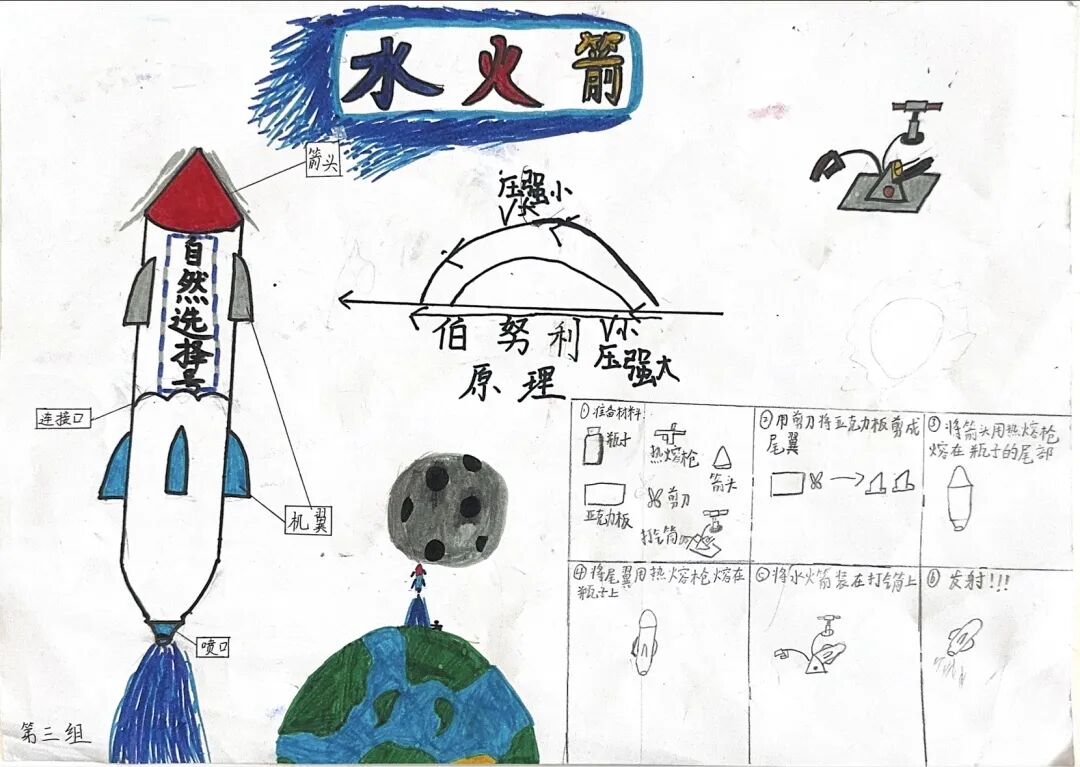 水火箭
箭头
自然选择号
连接口
机翼
喷口
第三组
压强小
V大
伯努利
原理
V小
压强大
① 准备材料
瓶子
热熔枪
箭头
亚克力板
剪刀
打气筒
② 用剪刀将亚克力板剪成
尾翼
③ 将箭头用热熔枪
熔在瓶子的尾部
④ 将尾翼用热熔枪熔在
瓶子上
⑤ 将水火箭装在打气筒上
⑥ 发射!!!